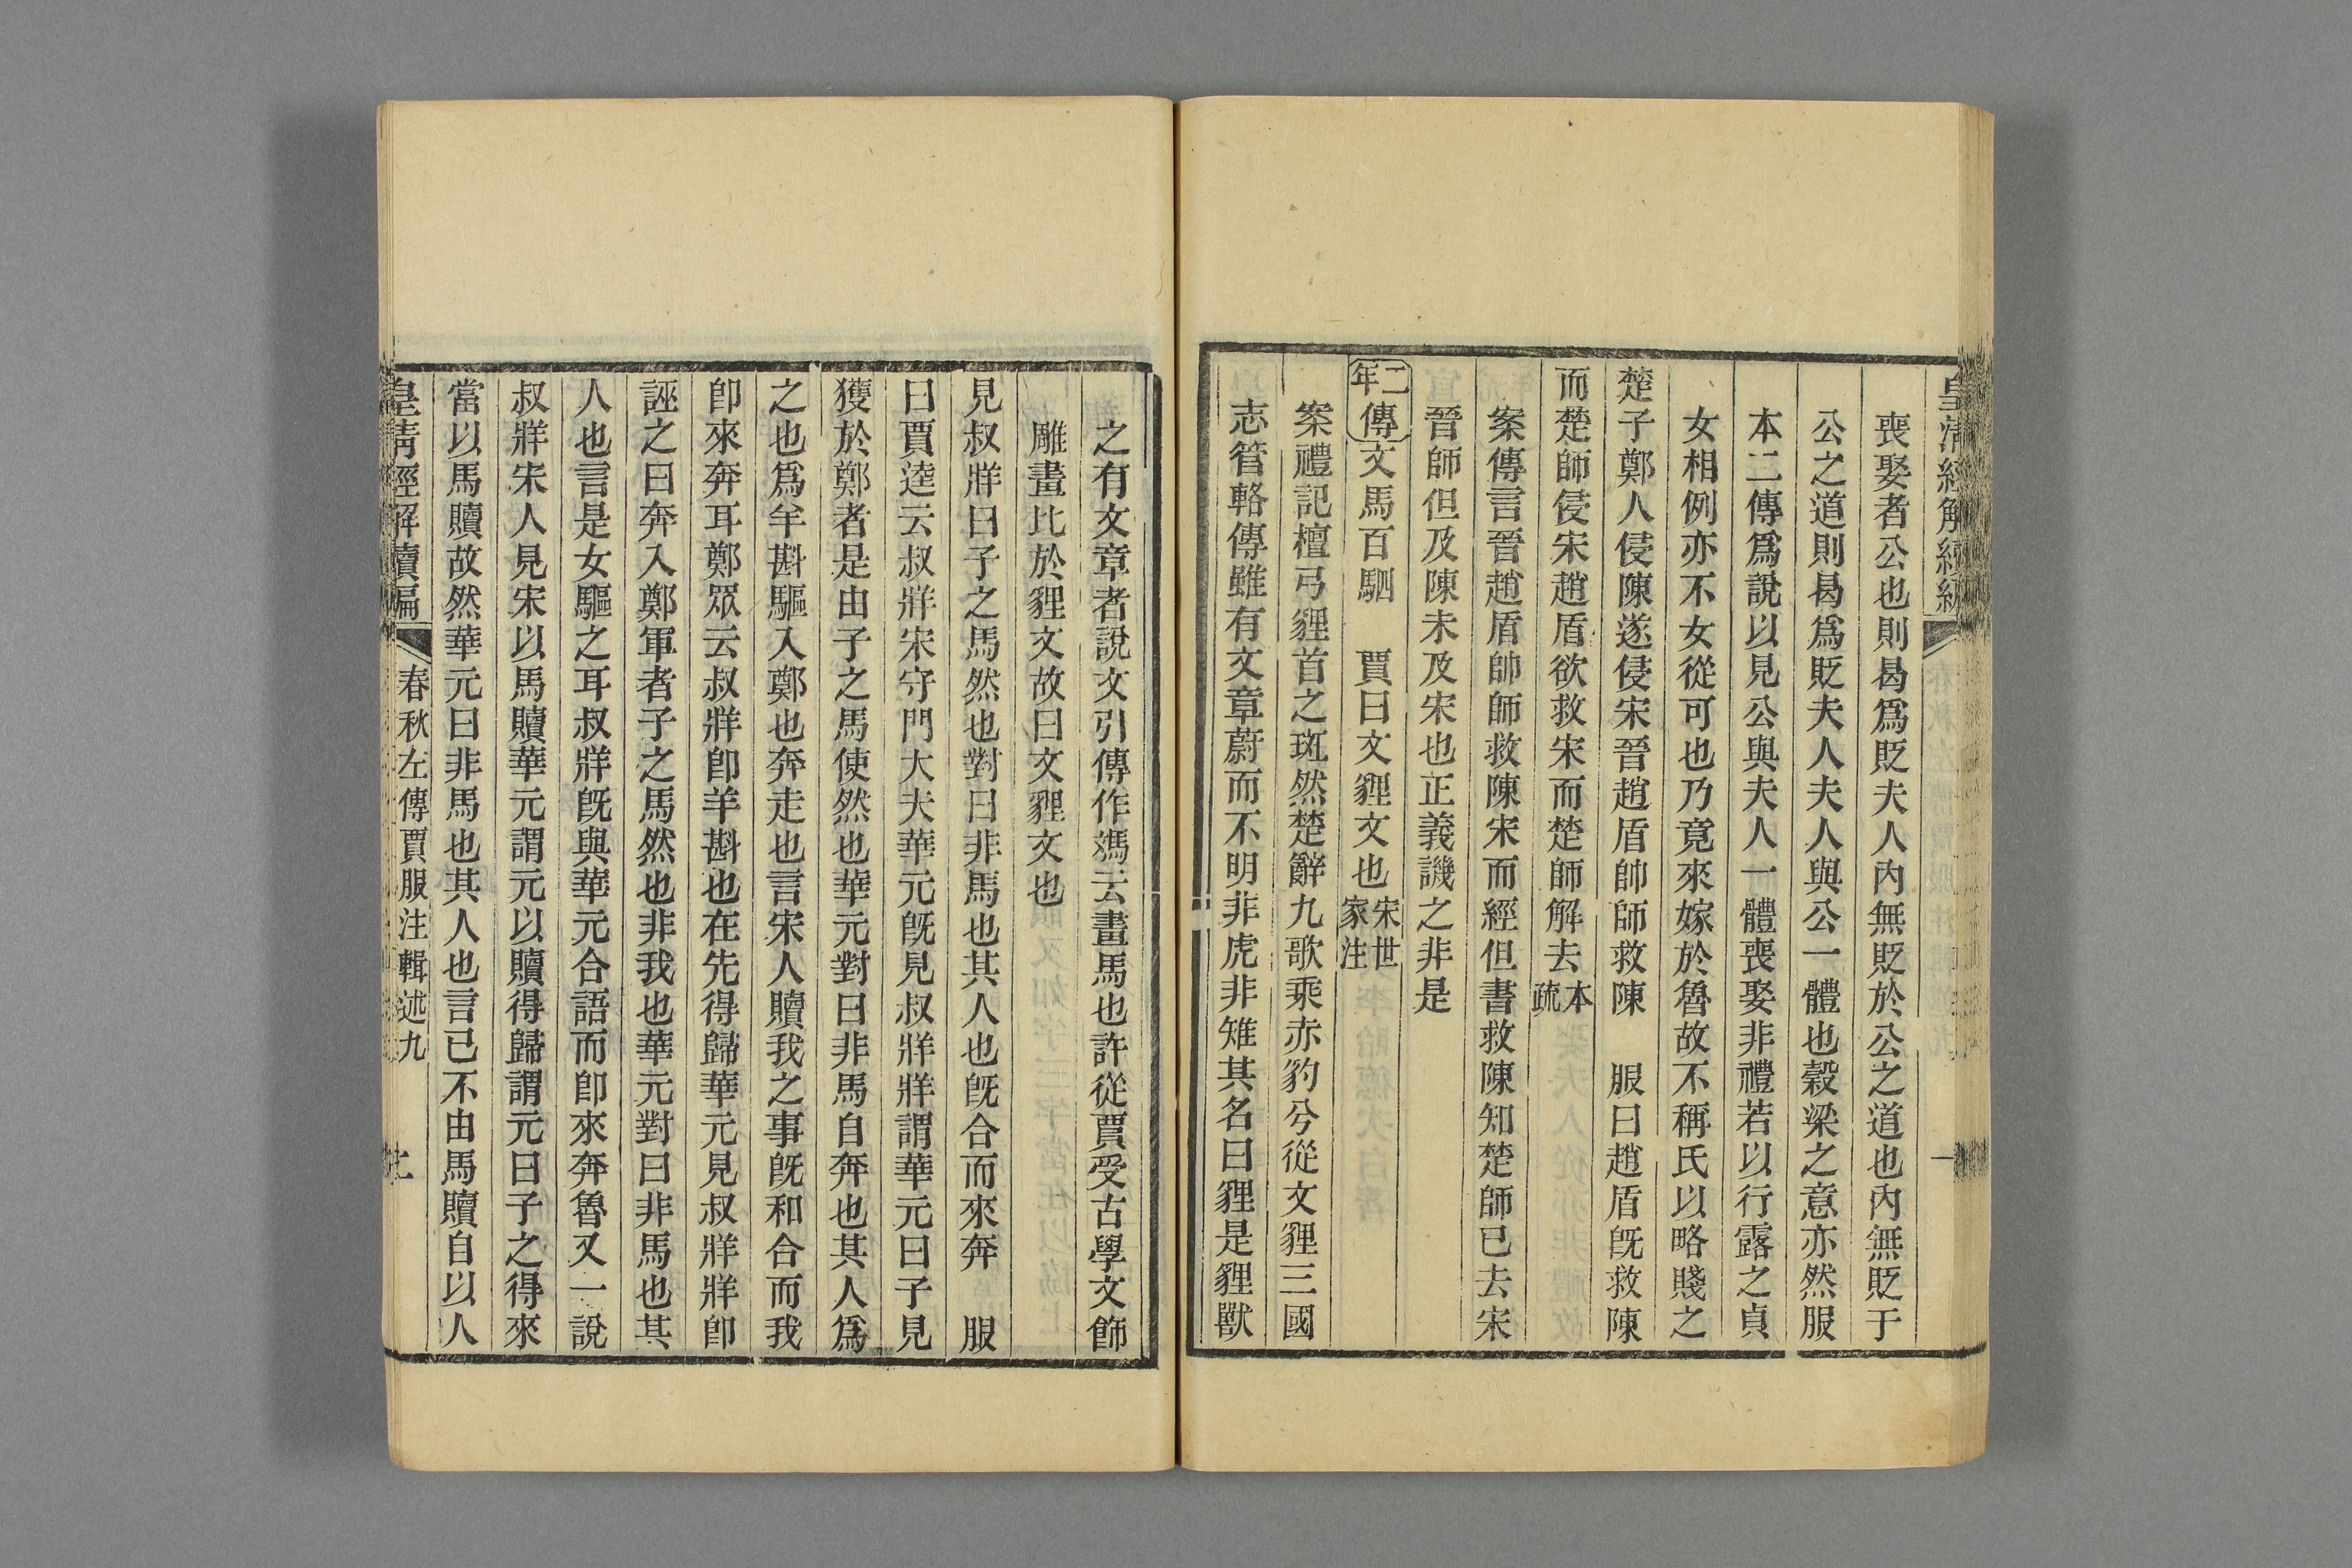 喪娶者公也則曷爲貶夫人內無貶於公之道也內無貶于
公之道則曷爲貶夫人夫人與公一體也穀梁之意亦然服
本二傳爲說以見公與夫人一體喪娶非禮若以行露之貞
女相例亦不女從可也乃竟來嫁於魯故不稱氏以略賤之
楚子鄭人侵陳遂侵宋晉趙盾帥師救陳　服曰趙盾旣救陳
而楚師侵宋趙盾欲救宋而楚師解去本疏
案傳言晉趙盾帥師救陳宋而經但書救陳知楚師已去宋
晉師但及陳未及宋也正義譏之非是
二年傳文馬百駟　賈曰文貍文也宋世家注
案禮記檀弓貍首之斑然楚辭九歌乘赤豹兮從文貍三國
志管輅傳雖有文章蔚而不明非虎非雉其名曰貍是貍獸
之有文章者說文引傳作䮵云畫馬也許從賈受古學文飾
雕畫比於貍文故曰文貍文也
見叔牂曰子之馬然也對曰非馬也其人也旣合而來奔　服
曰賈逵云叔牂宋守門大夫華元旣見叔牂牂謂華元曰子見
獲於鄭者是由子之馬使然也華元對曰非馬自奔也其人爲
之也爲羊斟驅入鄭也奔走也言宋人贖我之事旣和合而我
卽來奔耳鄭眾云叔牂卽羊斟也在先得歸華元見叔牂牂卽
誣之曰奔入鄭軍者子之馬然也非我也華元對曰非馬也其
人也言是女驅之耳叔牂旣與華元合語而卽來奔魯又一說
叔牂宋人見宋以馬贖華元謂元以贖得歸謂元曰子之得來
當以馬贖故然華元曰非馬也其人也言已不由馬贖自以人
皇淸經解續編　春秋左傳賈服注輯述九